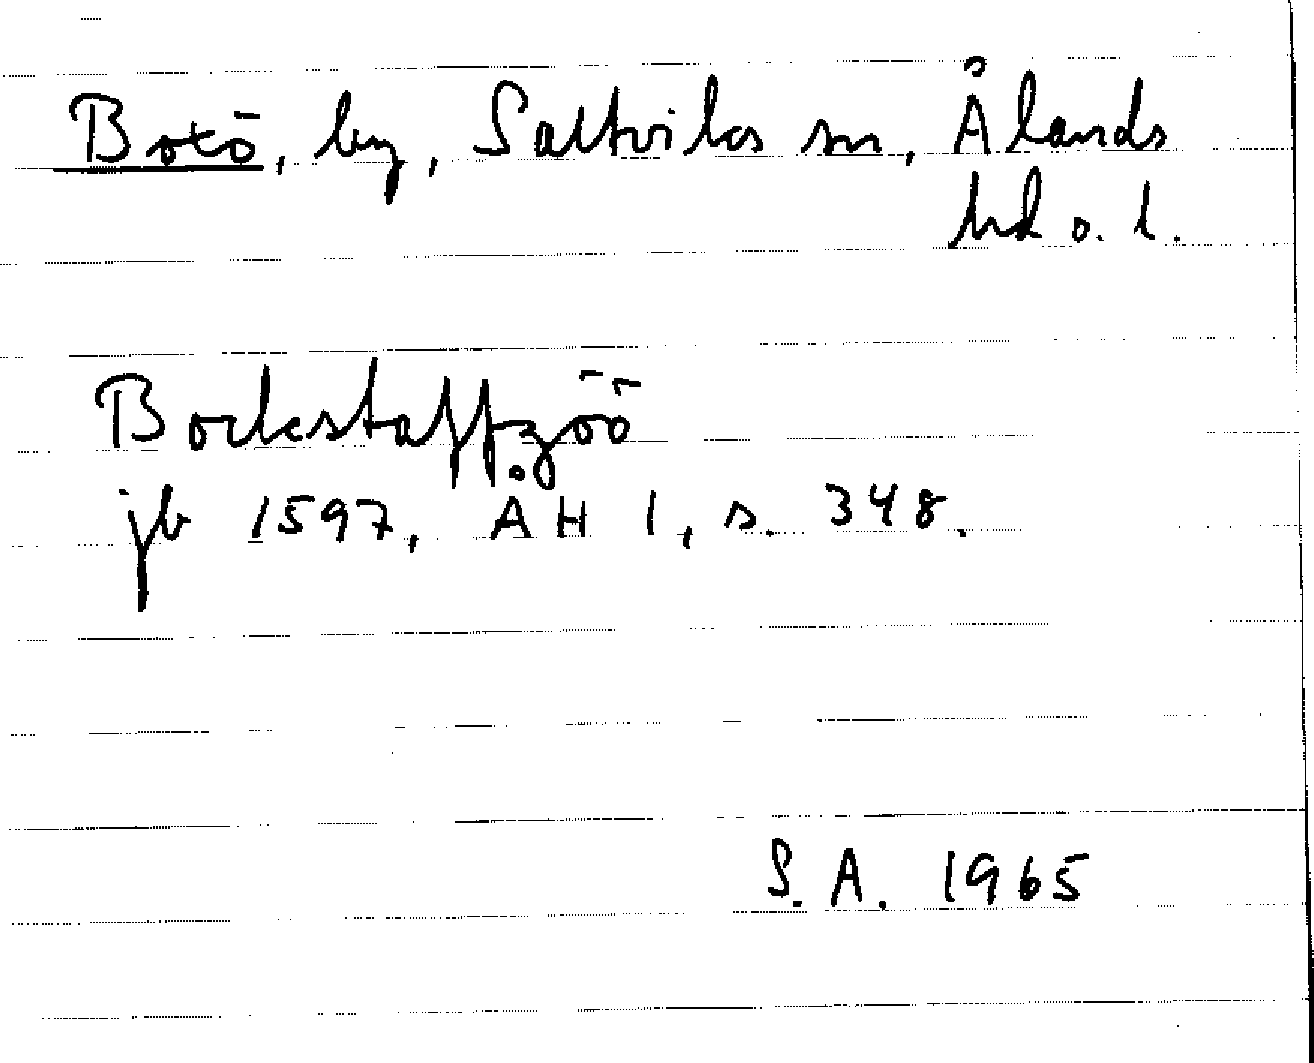 Botö, by, Saltviks sn, Ålands
hd o. l.
Bockstaffzöö
jb 1597, ÅH 1, s. 348.
S.A. 1965